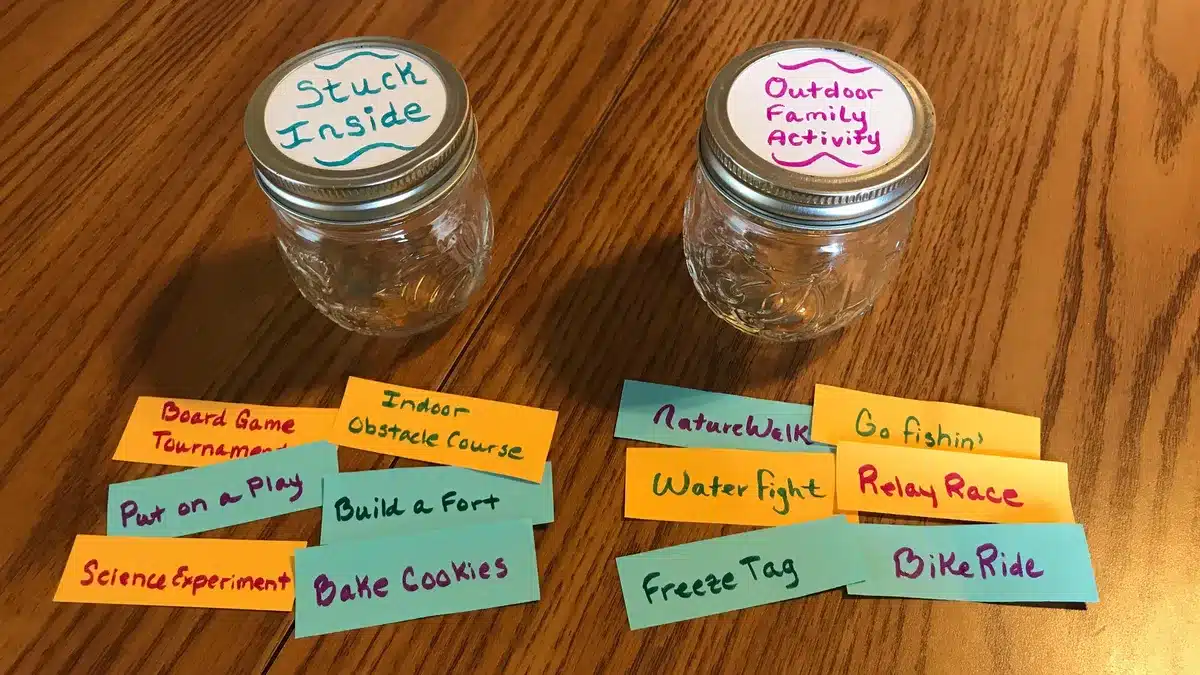 Stuck
Inside
Outdoor
Family
Activity
Board Game
Tournament
Indoor
Obstacle Course
Put on a Play
Build a Fort
Science Experiment
Bake Cookies
Nature Walk
Go fishin'
Water fight
Relay Race
Freeze Tag
Bike Ride